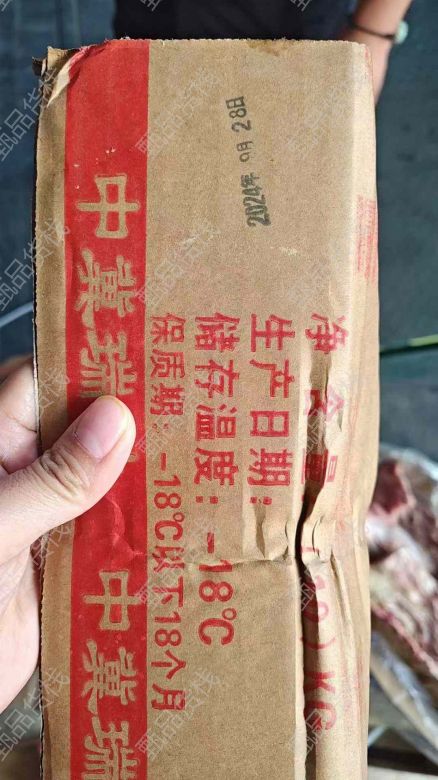 2024年 09月 28日
净含量:
) KG
生产日期:
储存温度: -18℃
保质期: -18℃以下18个月
中冀瑞
中冀瑞
甄品货栈